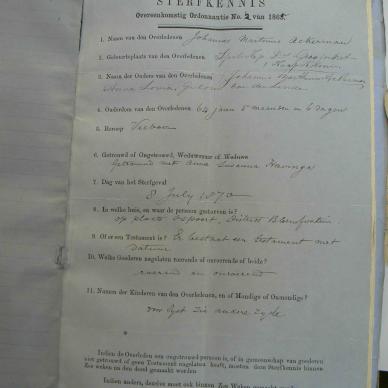 STERFKENNIS
Overeenkomstig Ordonnantie No. 2 van 1868.
1. Namen van den Overledenen Johannes Martinus Ackerman
2. Geboorteplaats van den Overledenen
Kaapkolonie
3. Namen der Ouders van den Overledenen Johannes
Anna Louisa, geboren van der Linde
4. Ouderdom van den Overledenen 64 jaar 5 maanden en 6 dagen
5. Beroep Veeboer
6. Getrouwd of Ongetrouwd, Weduwnaar of Weduwe
Getrouwd met Anna Susanna Havinga
7. Dag van het Sterfgeval
8 July 1870
8. In welke huis, en waar de persoon gestorven is?
op plaats District Bloemfontein
9. Of er een Testament is? Er bestaat een testament met
datum
10. Welke Goederen nagelaten roerende of onroerende of beide?
roerend en onroerend
11. Namen der Kinderen van den Overledenen, en of Mondige of Onmondige?
voor lyst zie andere zyde
Indien de Overleden een ongetrouwd persoon is, of in gemeenschap van goederen
niet getrouwd of geen Testament nagelaten heeft, moeten deze Sterfkennis binnen
Zes weken na den dood gemaakt worden
Indien anders, dan